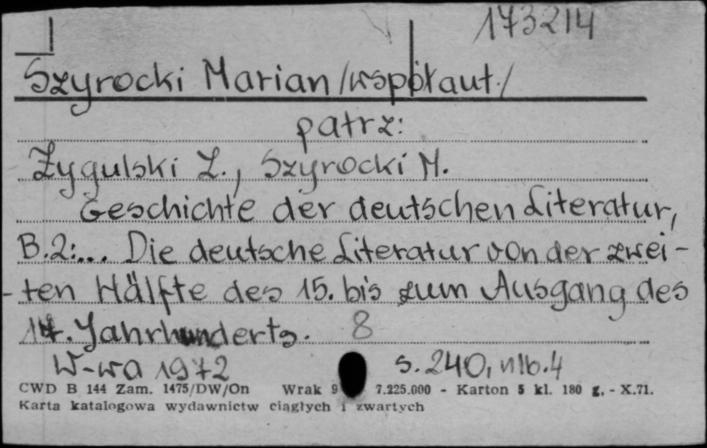 173214
Szyrocki Marian /współaut./
patrz:
Żygulski Z., Szyrocki M.
Geschichte der deutschen Literatur,
B.2:... Die deutsche Literatur von der zwei-
-ten Hälfte des 15. bis zum Ausgang des
17. Jahrhunderts. 8
W-wa 1972 s. 240, nlb. 4
CWD B 144 Zam. 1475/DW/On Wrak 9 7.225.000 - Karton 5 kl. 180 g. - X.71.
Karta katalogowa wydawnictw ciągłych i zwartych